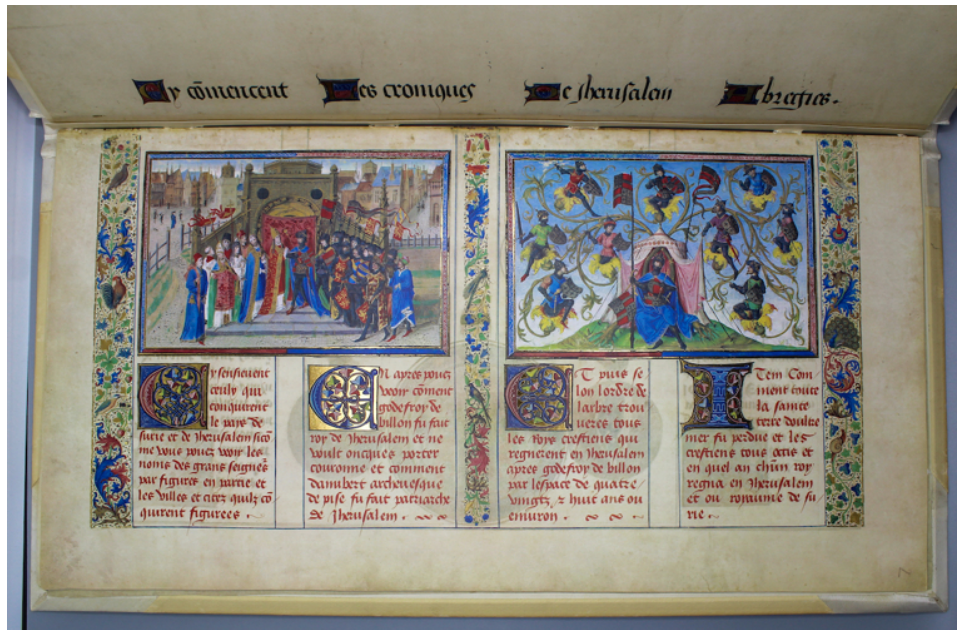 Cy cōmencent les croniques de Jherusalem abregies.
Cy sensieuent
ceulz qui
conquirent
le pays de
surie et de Jherusalem sicō
me vous pouez veoir les
noms des grans seignēs
par figures en partie et
les villes et citez quilz cō
quirent figurees.
En apres pouez
veoir cōment
godefroy de
billon fu fait
roy de Jherusalem et ne
voult oncques porter
couronne et comment
dambert archeuesque
de pise fu fait patriarche
de Jherusalem.
Et puis se
lon lordre de
larbre trou
ueres tous
les roys crestiens qui
regnerent en Jherusalem
apres godefroy de billon
par lespace de quatre
vingtz z huit ans ou
enuiron.
Item Com
ment toute
la sainte
terre doultre
mer fu perdue et les
crestiens tous ocis et
en quel an chūn roy
regna en Jherusalem
et ou royaume de su
rie.